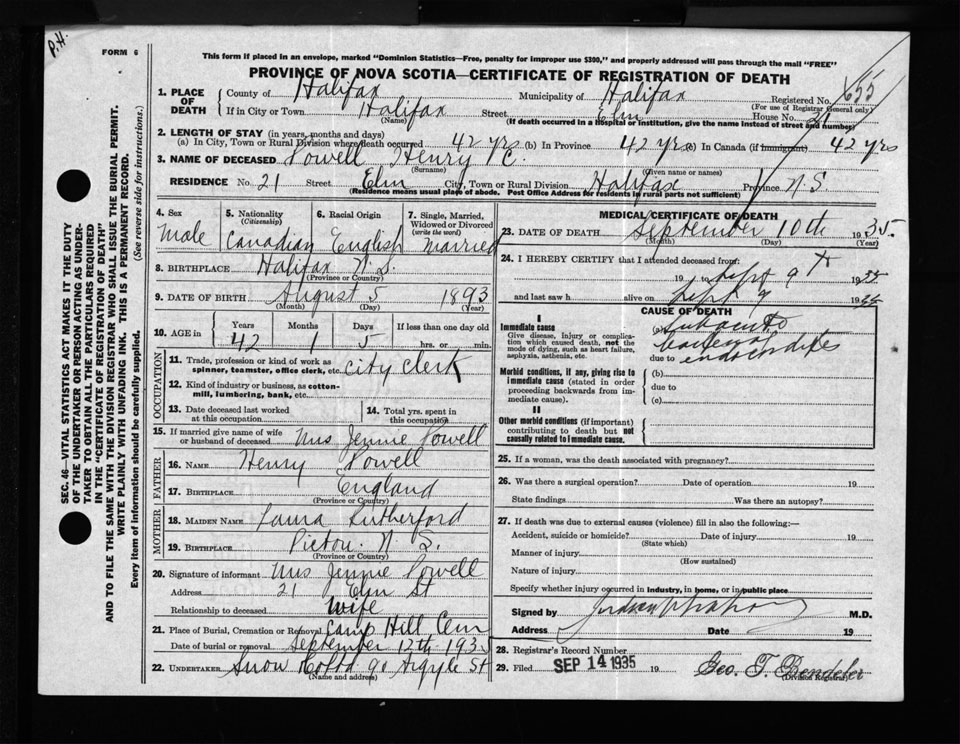 P.H.
FORM 6
SEC. 46—VITAL STATISTICS ACT MAKES IT THE DUTY
OF THE UNDERTAKER OR PERSON ACTING AS UNDER-
TAKER TO OBTAIN ALL THE PARTICULARS REQUIRED
IN THE "CERTIFICATE OF REGISTRATION OF DEATH"
AND TO FILE THE SAME WITH THE DIVISION REGISTRAR WHO SHALL ISSUE THE BURIAL PERMIT.
WRITE PLAINLY WITH UNFADING INK. THIS IS A PERMANENT RECORD.
Every item of information should be carefully supplied. (See reverse side for instructions.)
This form if placed in an envelope, marked "Dominion Statistics—Free, penalty for improper use $300," and properly addressed will pass through the mail "FREE"
PROVINCE OF NOVA SCOTIA—CERTIFICATE OF REGISTRATION OF DEATH
1. PLACE OF DEATH County of Halifax Municipality of Halifax Registered No. 655
(For use of Registrar General only)
If in City or Town Halifax Street Elm House No. 21
(Name) (If death occurred in a hospital or institution, give the name instead of street and number)
2. LENGTH OF STAY (in years, months and days)
(a) In City, Town or Rural Division where death occurred 42 yrs (b) In Province 42 yrs (c) In Canada (if immigrant) 42 yrs
3. NAME OF DECEASED Powell Henry C.
(Surname) (Given name or names)
RESIDENCE No. 21 Street Elm City, Town or Rural Division Halifax Province N S
(Residence means usual place of abode. Post Office Address for residents in rural parts not sufficient)
4. Sex 5. Nationality (Citizenship) 6. Racial Origin 7. Single, Married, Widowed or Divorced (write the word)
Male Canadian English Married
8. BIRTHPLACE Halifax N.S.
(Province or Country)
9. DATE OF BIRTH August 5 1893
(Month) (Day) (Year)
10. AGE in Years Months Days If less than one day old
42 1 5 hrs. or min.
OCCUPATION
11. Trade, profession or kind of work as spinner, teamster, office clerk, etc. City Clerk
12. Kind of industry or business, as cotton-mill, lumbering, bank, etc.
13. Date deceased last worked at this occupation 14. Total yrs. spent in this occupation
15. If married give name of wife or husband of deceased Mrs Jennie Powell
FATHER
16. NAME Henry Powell
17. BIRTHPLACE England
(Province or Country)
MOTHER
18. MAIDEN NAME Laura Rutherford
19. BIRTHPLACE Pictou N S.
(Province or Country)
20. Signature of informant Mrs Jennie Powell
Address 21 Elm St
Relationship to deceased Wife
21. Place of Burial, Cremation or Removal Camp Hill Cem
Date of burial or removal September 12th 1935
22. UNDERTAKER Snow Co Ltd 90 Argyle St
(Name and address)
MEDICAL CERTIFICATE OF DEATH
23. DATE OF DEATH September 10th 1935.
(Month) (Day) (Year)
24. I HEREBY CERTIFY that I attended deceased from:
19 to Sept 9th 1935
and last saw h alive on Sept 9 1935
CAUSE OF DEATH
I
Immediate cause
Give disease, injury or complication which caused death, not the mode of dying, such as heart failure, asphyxia, asthenia, etc.
(a) Subacute
bacterial
due to endocarditis
Morbid conditions, if any, giving rise to immediate cause (stated in order proceeding backwards from immediate cause).
(b)
due to
(c)
II
Other morbid conditions (if important) contributing to death but not causally related to immediate cause.
25. If a woman, was the death associated with pregnancy?
26. Was there a surgical operation? Date of operation 19
State findings Was there an autopsy?
27. If death was due to external causes (violence) fill in also the following:—
Accident, suicide or homicide? Date of injury 19
(State which)
Manner of injury
(How sustained)
Nature of injury
Specify whether injury occurred in industry, in home, or in public place
Signed by M.D.
Address Date 19
28. Registrar's Record Number
29. Filed SEP 14 1935 19 Geo. T. Bendeler
(Division Registrar)